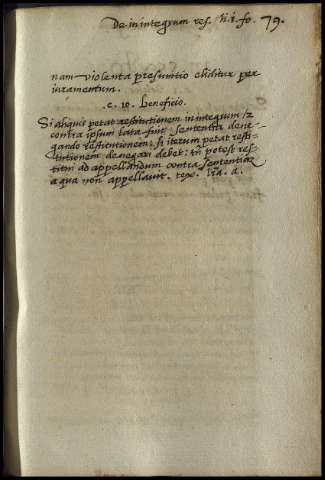 De in integrum res. ti. i. fo. 79.
nam violenta presumtio eliditur per
iuramentum.
c. 10. beneficio.
Si aliquis petat restitutionem in integrum /z
contra ipsum lata fuit sententia dene-
gando restitutionem: si iterum petat resti-
tutionem denegari debet: tñ potest res-
titui ad appellandum contra sententiam
a qua non appellauit. tex.